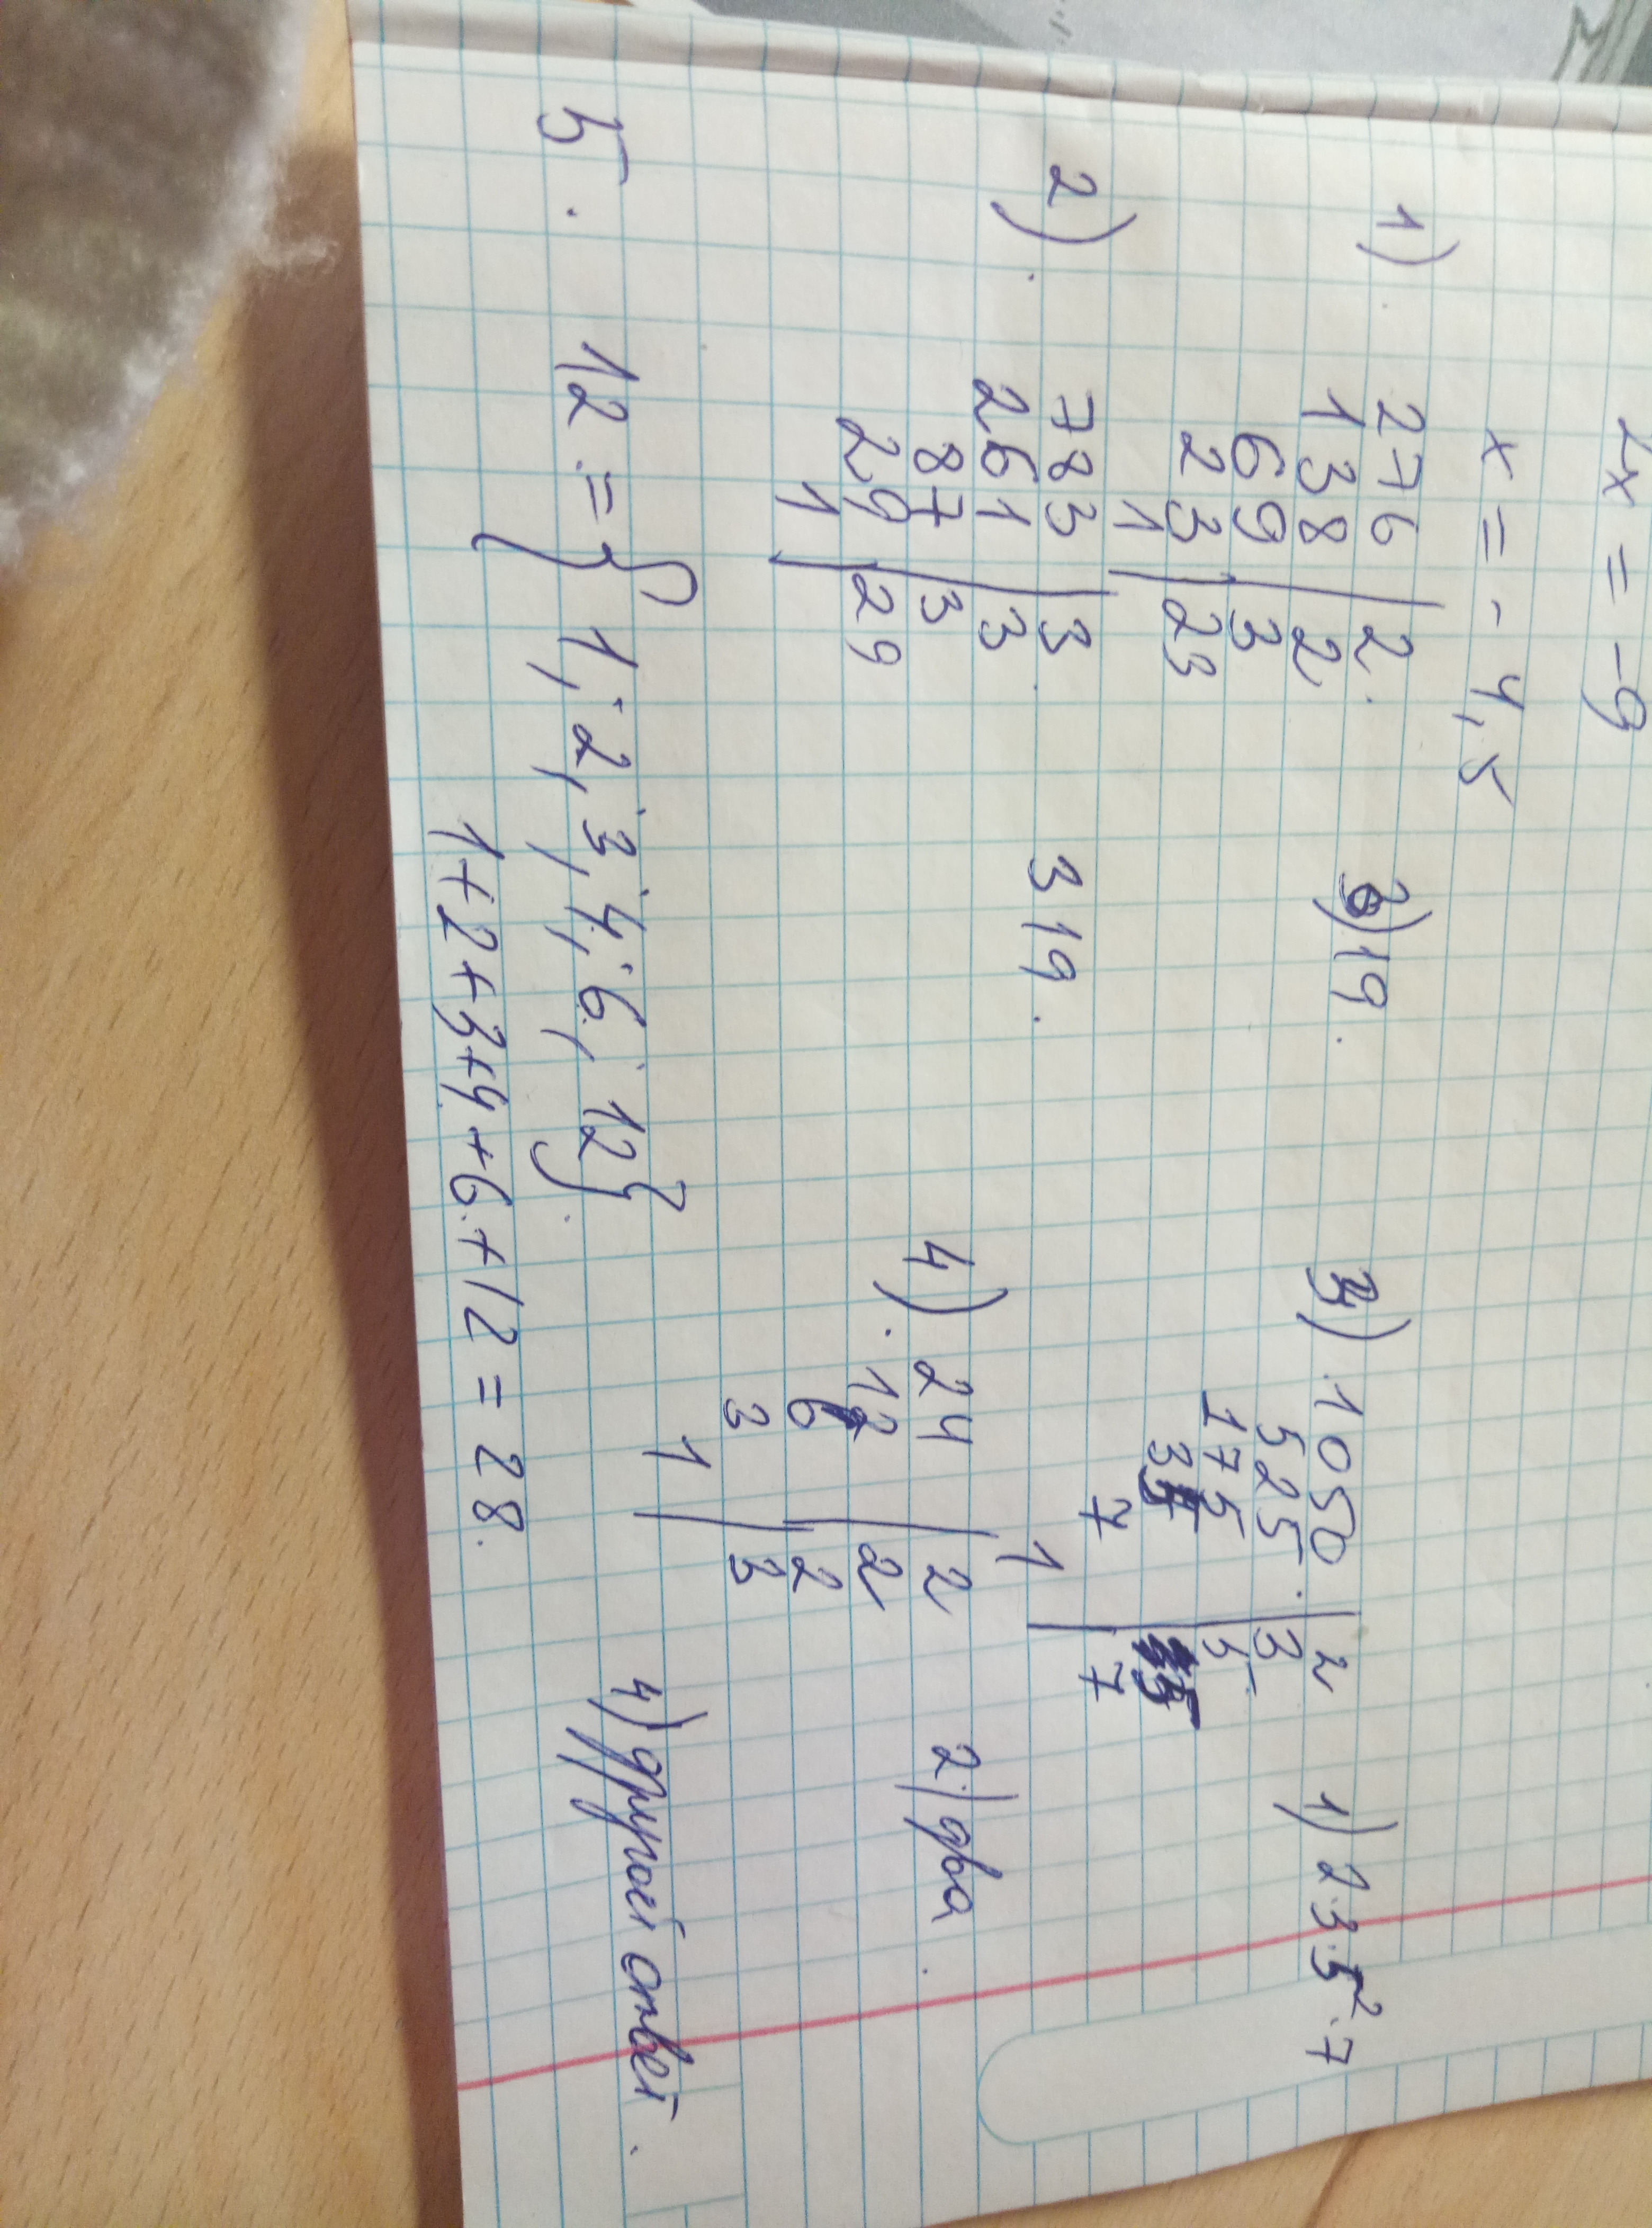 2x = -9
x = - 4,5
1). 276 | 2.
138 | 2
69 | 3
23 | 23
1
3) 19.
3) 1050 | 2
525 | 3
175 | 5
35 | 5
7 | 7
1
1) 2·3·5²·7
2). 783 | 3
261 | 3
87 | 3
29 | 29
1
3 19.
4). 24 | 2
12 | 2
6 | 2
3 | 3
1
2) два.
5. 12 = { 1; 2; 3; 4; 6; 12}.
1+2+3+4+6+12 = 28.
4) другой ответ.